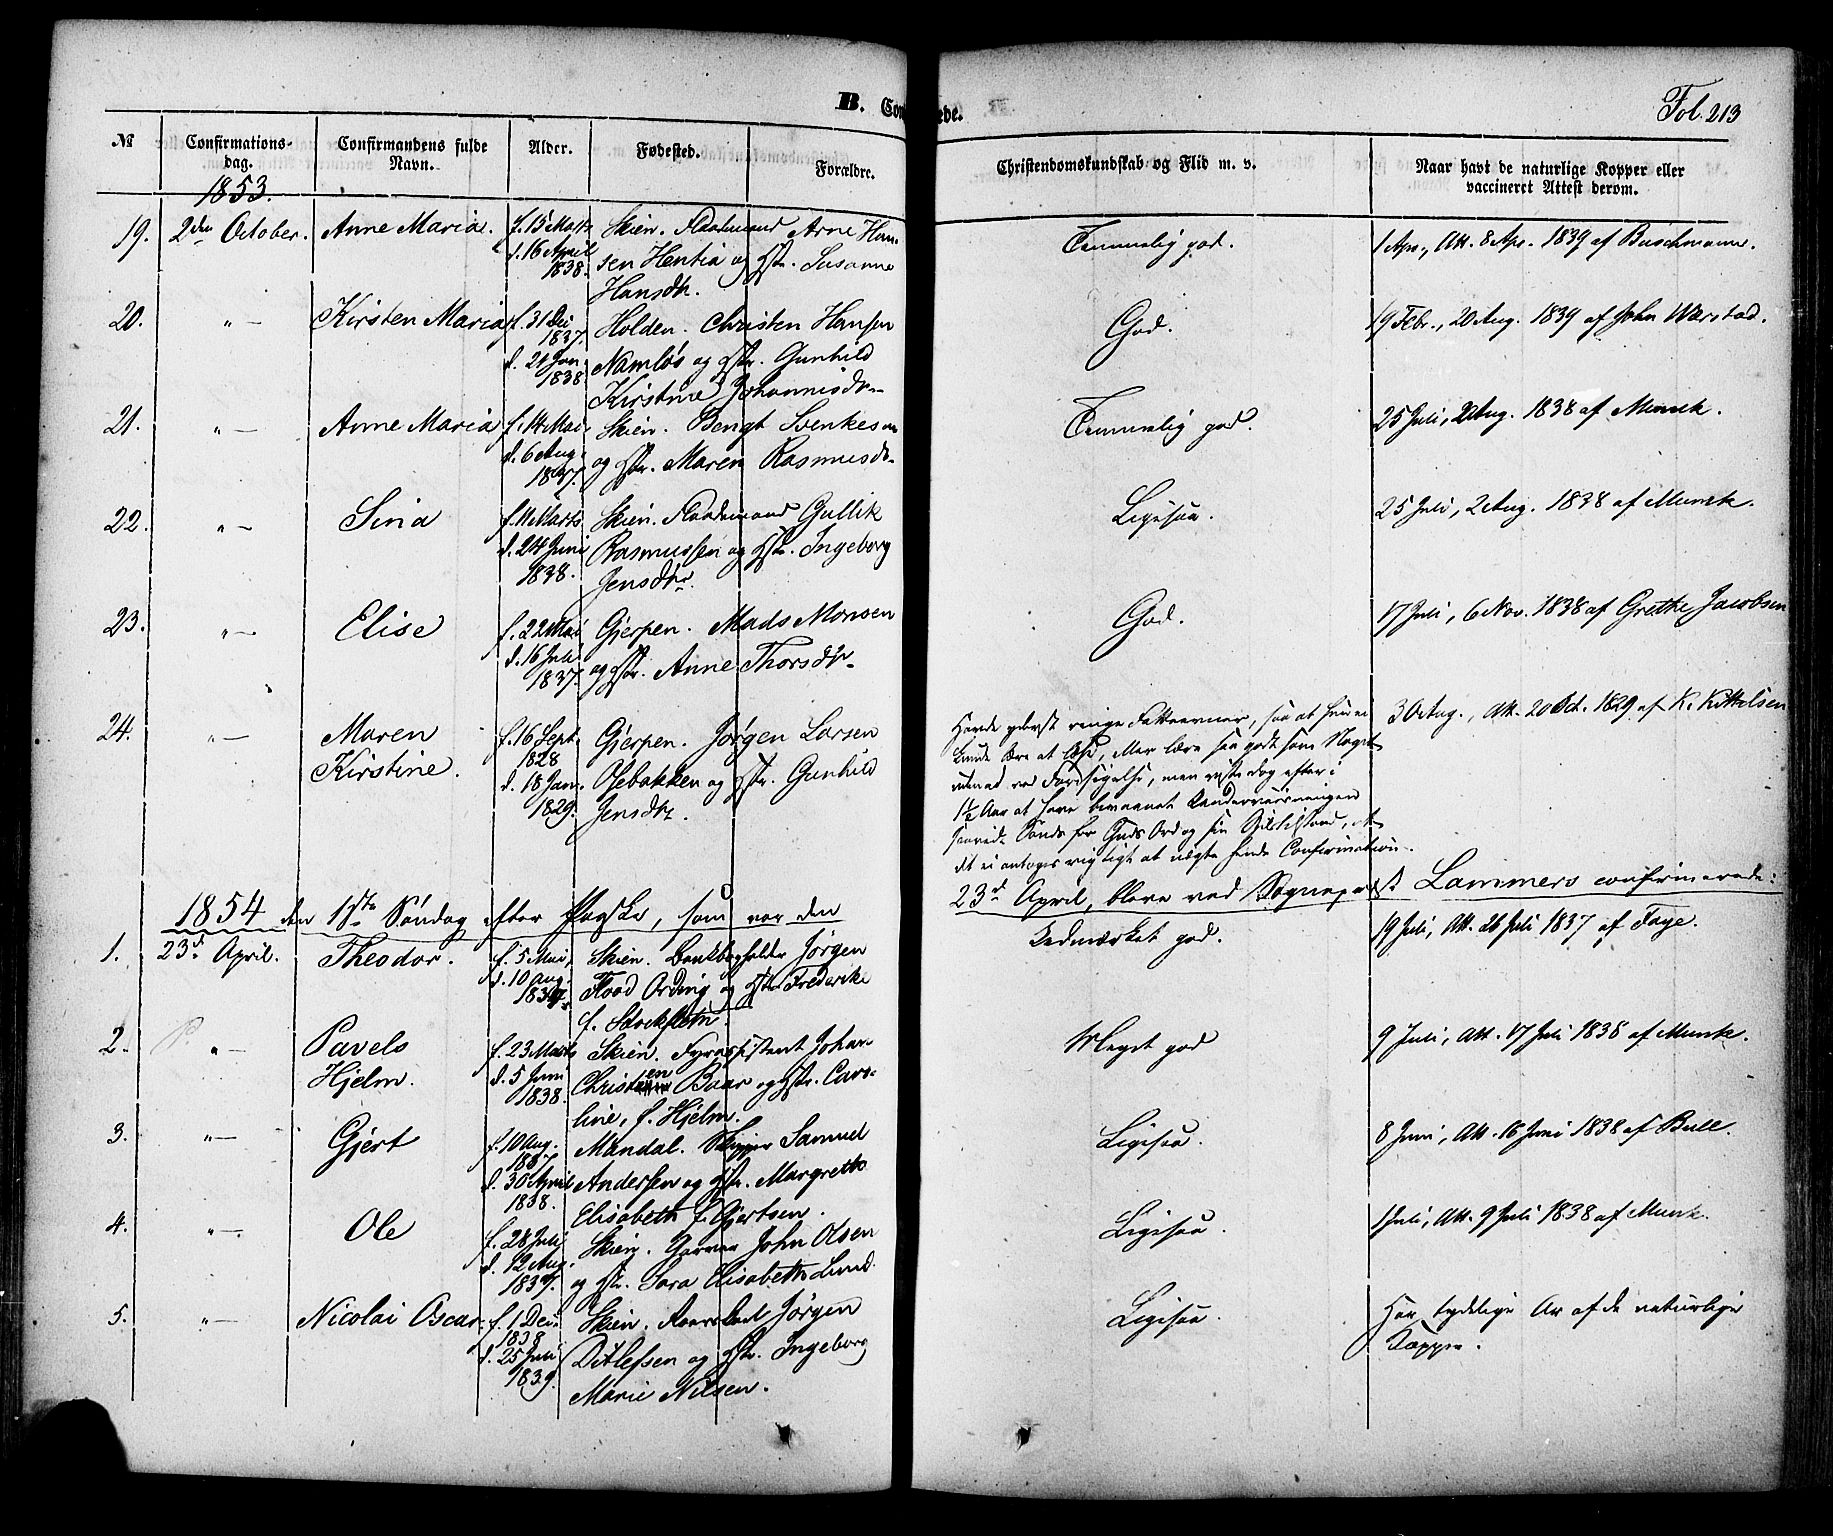 B. Con ede.
Fol. 213
№
Confirmations-
dag.
Confirmandens fulde
Navn.
Alder.
Fødested.
Forældre.
Christendomskundskab og Flid m. v.
Naar havt de naturlige Kopper eller
vaccineret Attest derom.
1853.
19. 2den October. Anne Maria. f. 15 Marts Skien. Flodmand Arne Han-
d. 16 April sen Hentia og Hstr. Susanne
1838. Hansdtr.
Temmelig god.
1 Apr., Att. 8 Apr. 1839 af Buschmann.
20. " — Kirsten Maria f. 31 Dec Holden. Christen Hansen
1837. d. 24 Jan. Namløs og Hstr. Gunhild
1838 Kirstine Johannisdtr
God.
19 Febr., 20 Aug. 1839 af John Warstad.
21. " — Anne Maria f. 14 Mai Skien. Bengt Svenkesen
d. 6 Aug. og Hstr. Maren Rasmusdtr
1837.
Temmelig god.
25 Juli, 2 Aug. 1838 af Munck.
22. " — Sina f. 11 Marts Skien. Flodmand Gullik
d. 24 Juni Rasmussen og Hstr. Ingeborg
1838. Jensdtr
Ligesaa.
25 Juli, 2 Aug. 1838 af Munck.
23. " — Elise f. 22 Mai Gjerpen. Mads Monsen
d. 16 Juli og Hstr. Anne Thorsdtr
1837.
God.
17 Juli, 6 Nov. 1838 af Grethe Jacobsen
24. " — Maren f. 16 Sept. Gjerpen. Jørgen Larsen
Kirstine. 1828
d. 18 Jan. Osebakken og Hstr. Gunhild
1829. Jensdtr.
Havde yderst ringe Fatteevner, saa at hun ei
kunde lære at læse, eller lære saa godt som Noget
uden ad ved Foresigelse, men viste dog efter i
1½ Aar at have
for Guds Ord og sin
det ei antages rigtigt at nægte hende Confirmation.
30 Aug., Att. 20 Oct. 1829 af K. Kittelsen
1854 den 1ste Søndag efter Paaske, som var den
23d April, bleve ved Sognepræst Lammers confirmerede:
1. 23d April. Theodor. f. 5 Mai, Skien. Bankbogholder Jørgen
d. 10 Aug. Flood Ording og Hstr. Frederike
f. Stockfleth.
Udmærket god.
19 Juli, Att. 26 Juli 1837 af Faye.
2. " — Pavels f. 23 Marts Skien. Fyrassistent Johan
Hjelm. d. 5 Juni Christen Baar og Hstr. Caro-
1838. line, f. Hjelm.
Meget god
9 Juli, Att. 17 Juli 1838 af Munck.
3. " — Gjert f. 10 Aug. Mandal. Skipper Samuel
1837
d. 30 April Andersen og Hstr. Margrethe
1838. Elisabeth f. Gjertsen.
Ligesaa.
8 Juni, Att. 16 Juni 1838 af Bull.
4. " — Ole f. 28 Juli Skien. Garver John Olsen
d. 12 Aug. og Hstr. Sara Elisabeth Lund.
1837.
Ligesaa.
1 Juli, Att. 9 Juli 1838 af Munck.
5. " — Nicolai Oscar. f. 1 Dec. Skien. Jørgen
1838
d. 25 Juli Ditlefsen og Hstr. Ingeborg
1839. Marie Nilsen.
Ligesaa.
Har tydelige Ar af de naturlige
Kopper.